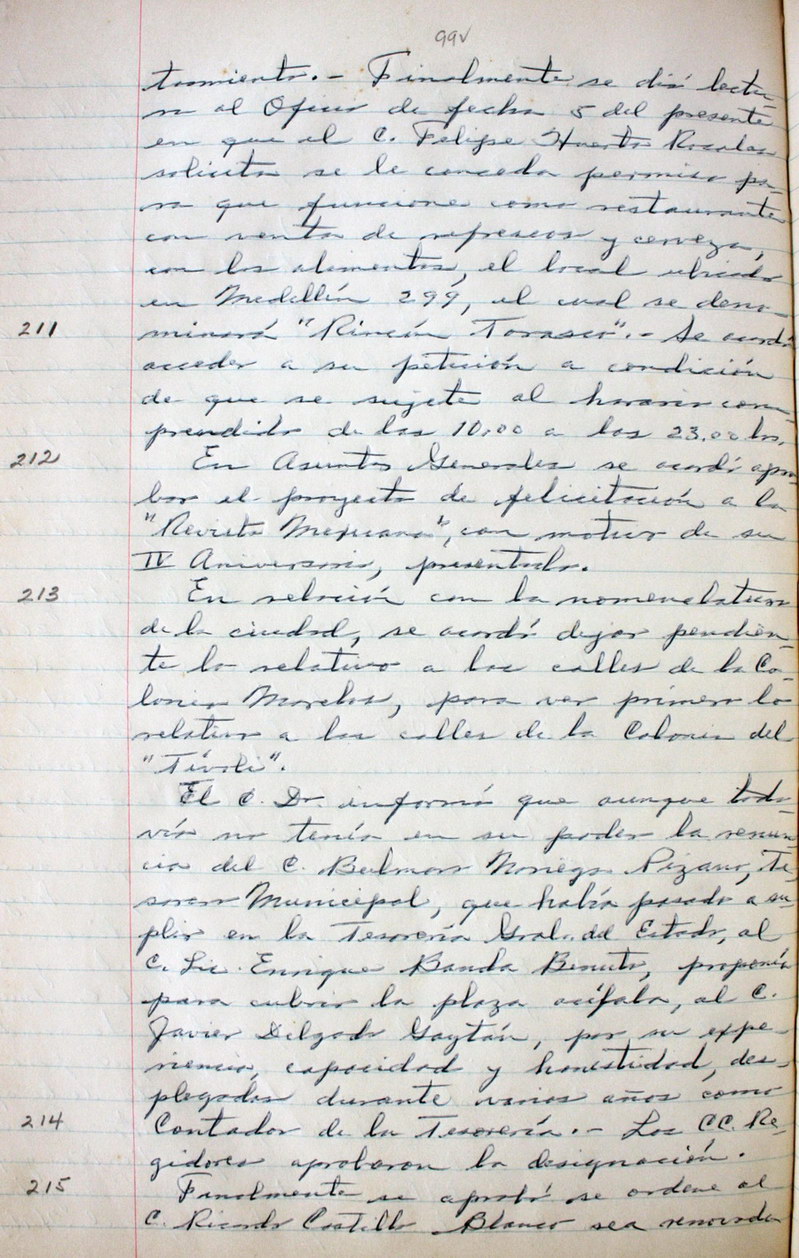 99v
tamiento.- Finalmente se dió lectu-
ra al Oficio de fecha 5 del presente
en que el C. Felipe Huerta Rosales
solicita se le conceda permiso pa-
ra que funcione como restaurante
con venta de refrescos y cerveza,
con los alimentos, el local ubicado
en Medellín 299, el cual se deno-
211 minará "Rincón Tarasco".- Se acordó
acceder a su petición a condición
de que se sujete al horario com-
prendido de las 10.00 a las 23.00 hs.
212 En Asuntos Generales se acordó apro-
bar el proyecto de felicitación a la
"Revista Mexicana", con motivo de su
IV Aniversario, presentado.
213 En relación con la nomenclatura
de la ciudad, se acordó dejar pendien-
te lo relativo a las calles de la Co-
lonia Morelos, para ver primero lo
relativo a las calles de la Colonia del
"Tívoli".
El C. Dr. informó que aunque toda-
vía no tenía en su poder la renun-
cia del C. Noriega Pizano, Te-
sorero Municipal, que había pasado a su-
plir en la Tesorería Gral. del Estado, al
C. Lic. Enrique Banda, proponía
para cubrir la plaza acéfala, al C.
Javier Delgado Gaytán, por su expe-
riencia, capacidad y honestidad, des-
plegadas durante varios años como
214 Contador de la Tesorería.- Los CC. Re-
gidores aprobaron la designación.
215 Finalmente se aprobó se ordene al
C. Ricardo Castillo Blanco sea renovada